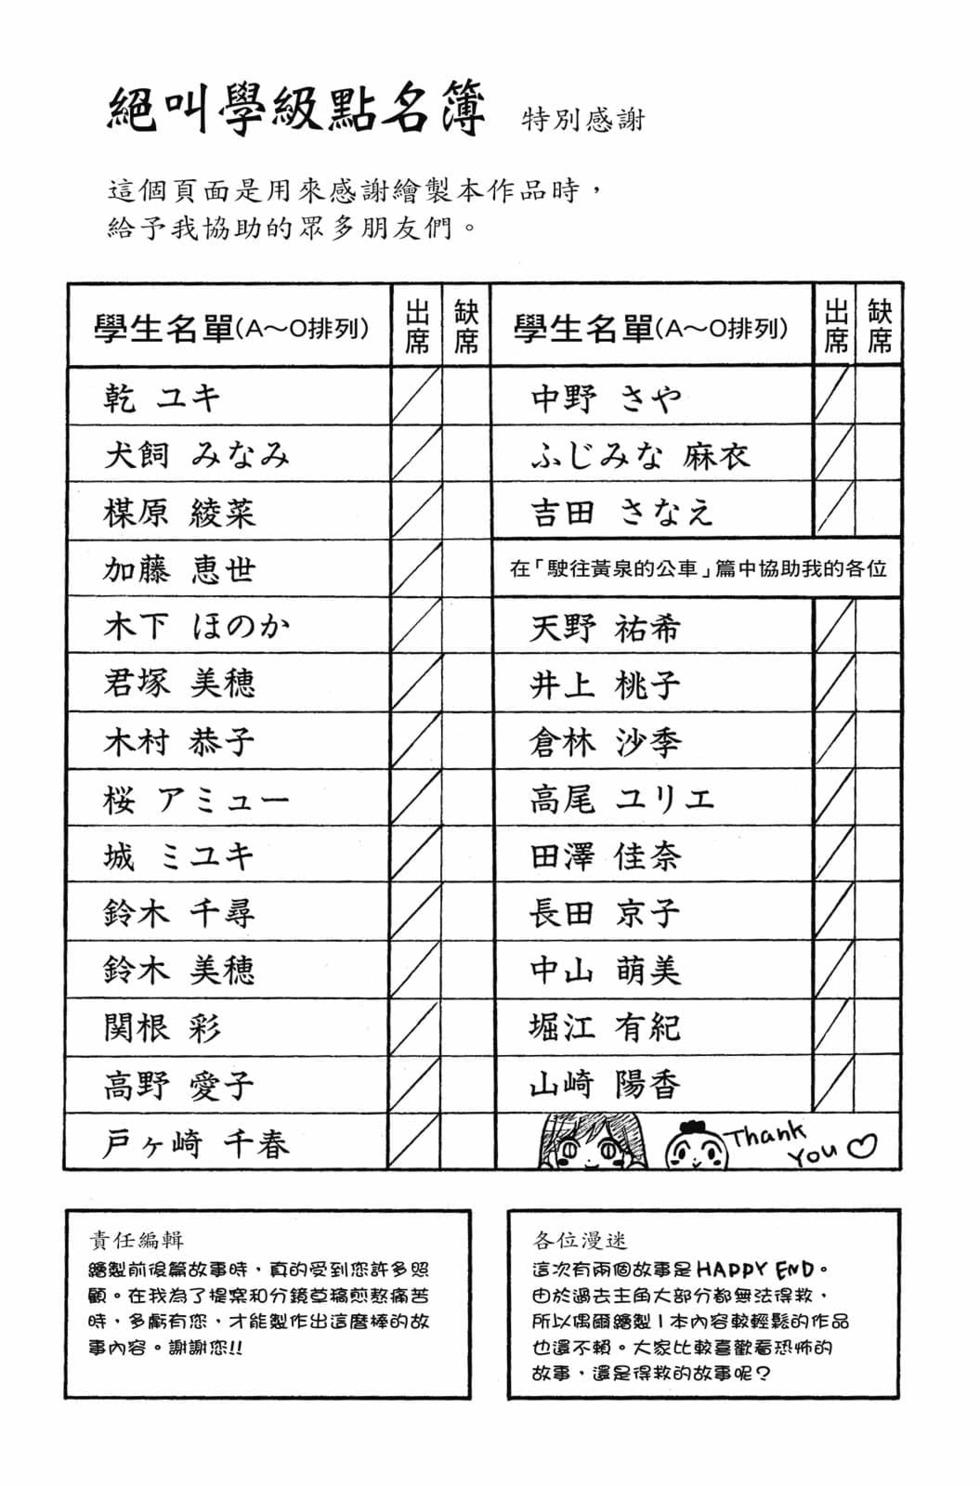 絕叫學級點名簿 特別感謝
這個頁面是用來感謝繪製本作品時，
給予我協助的眾多朋友們。
學生名單(A～O排列) 出席 缺席
乾 ユキ
犬飼 みなみ
楳原 綾菜
加藤 恵世
木下 ほのか
君塚 美穂
木村 恭子
桜 アミュー
城 ミユキ
鈴木 千尋
鈴木 美穂
関根 彩
高野 愛子
戸ヶ崎 千春
學生名單(A～O排列) 出席 缺席
中野 さや
ふじみな 麻衣
吉田 さなえ
在「駛往黃泉的公車」篇中協助我的各位
天野 祐希
井上 桃子
倉林 沙季
高尾 ユリエ
田澤 佳奈
長田 京子
中山 萌美
堀江 有紀
山崎 陽香
Thank
You
責任編輯
繪製前後篇故事時，真的受到您許多照
顧。在我為了提案和分鏡草稿煎熬痛苦
時，多虧有您，才能製作出這麼棒的故
事內容。謝謝您!!
各位漫迷
這次有兩個故事是HAPPY END。
由於過去主角大部分都無法得救，
所以偶爾繪製1本內容較輕鬆的作品
也還不賴。大家比較喜歡看恐怖的
故事，還是得救的故事呢？